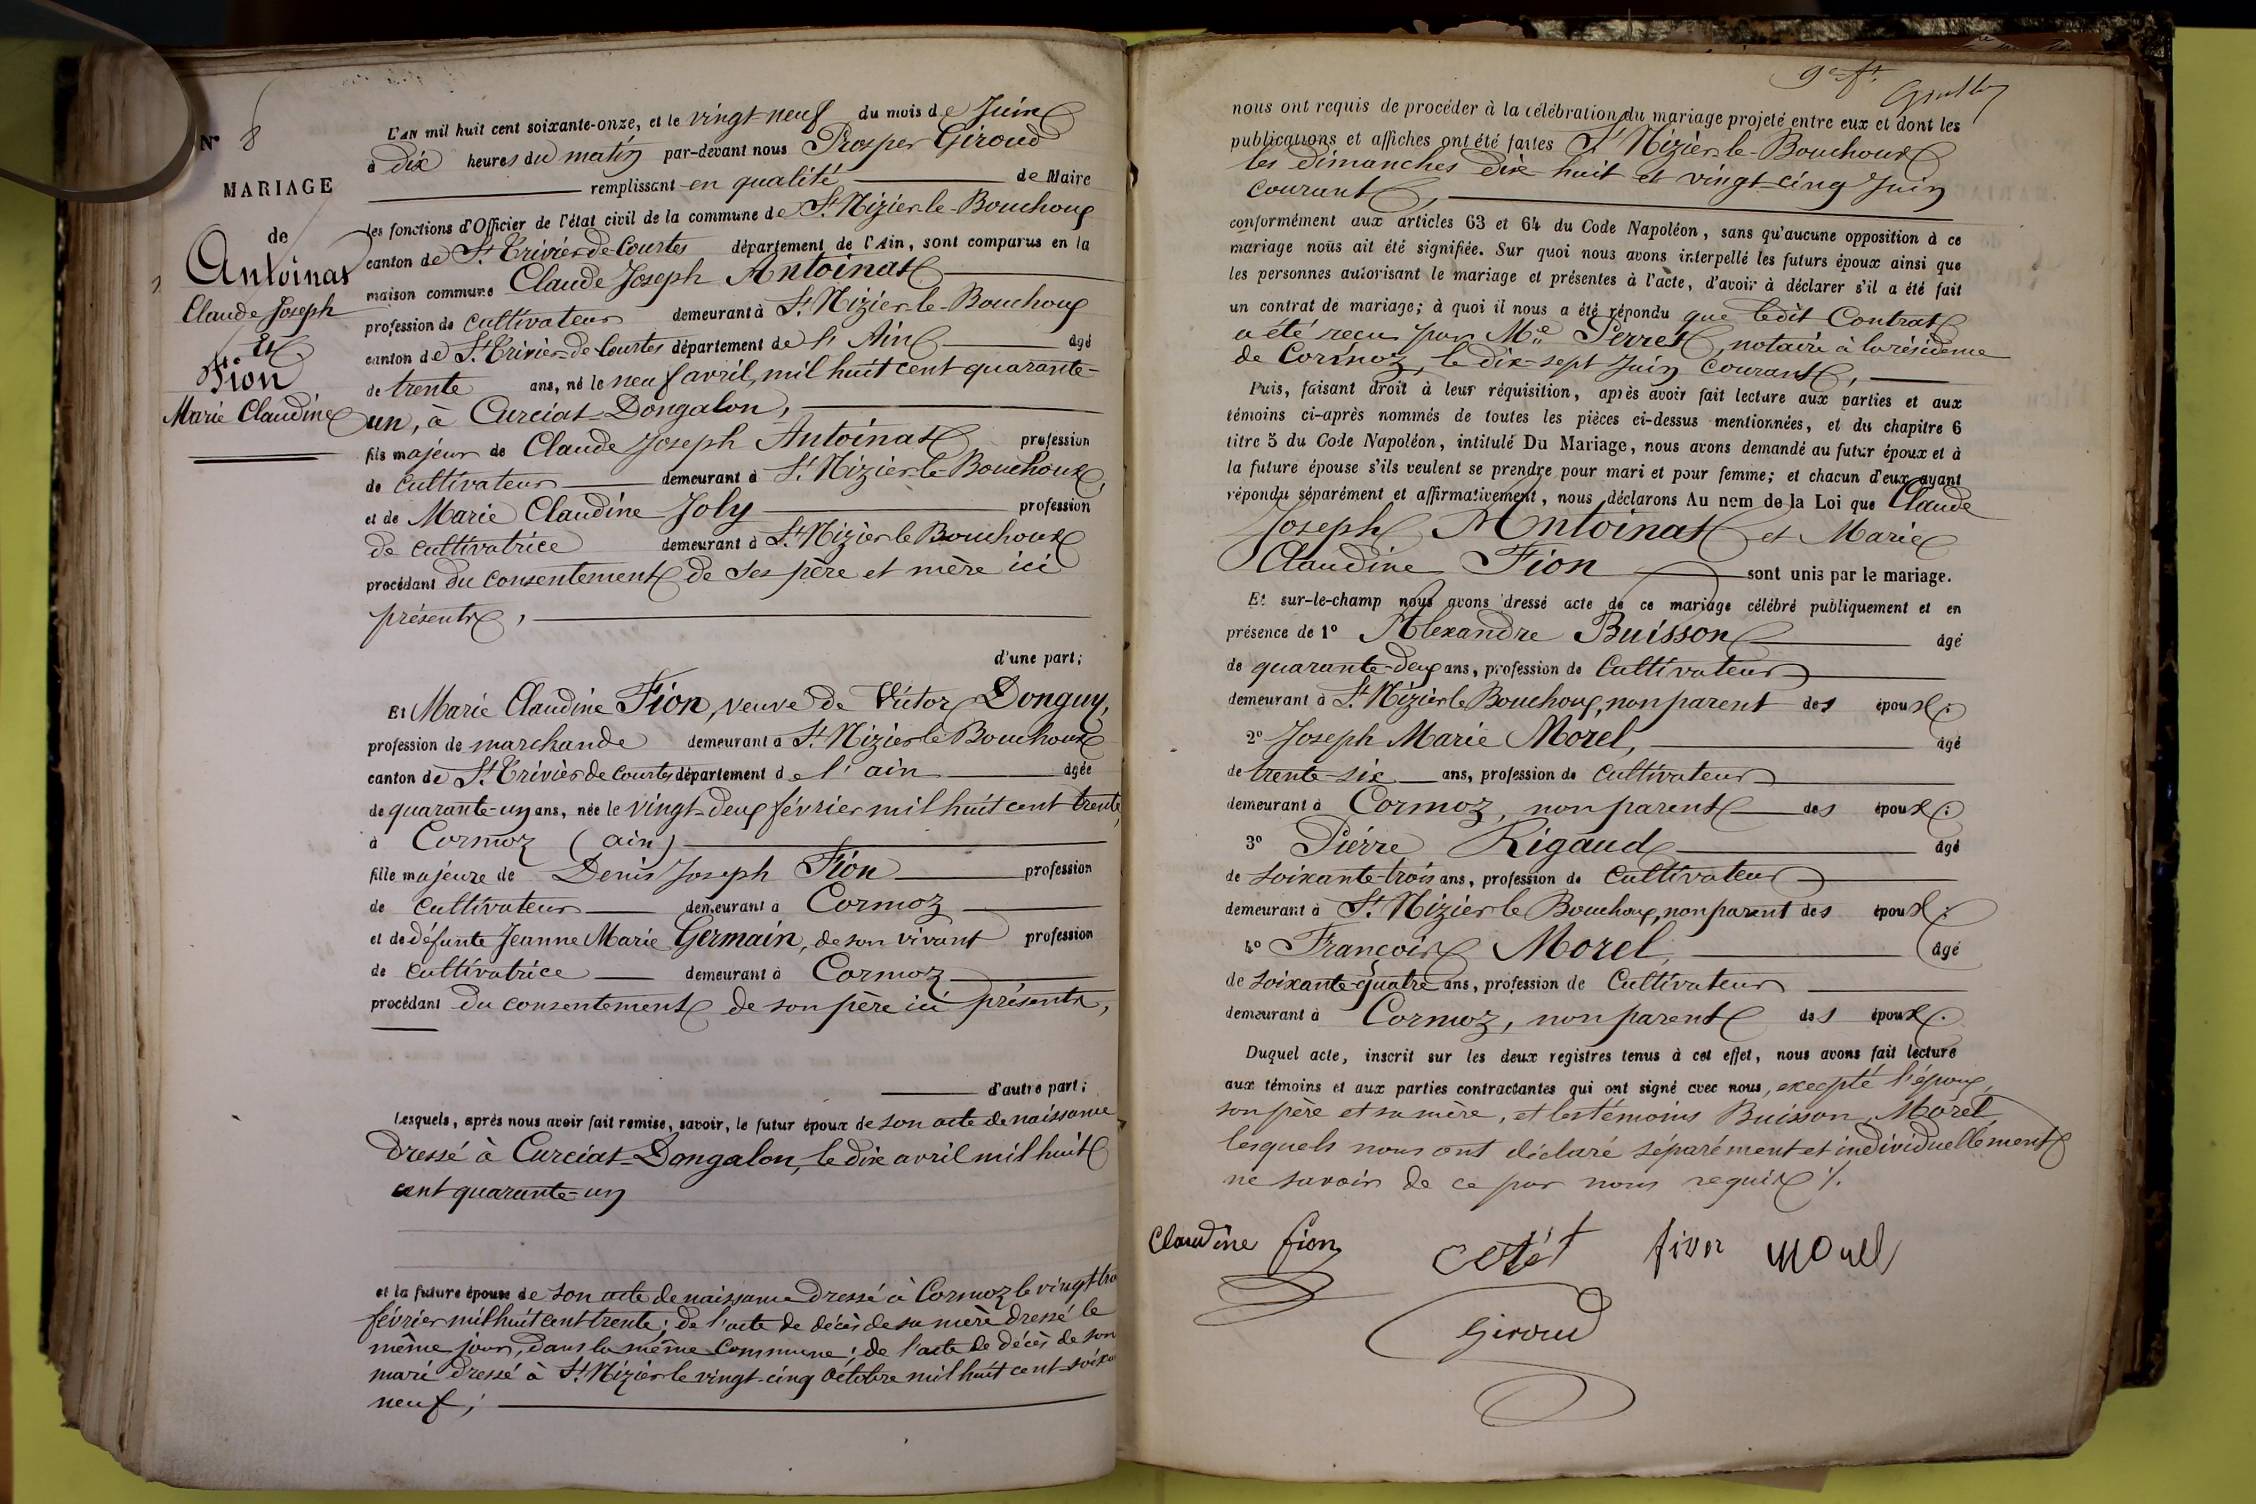 N° 8
MARIAGE
de
Antoinat
Claude Joseph
Et
Fion
Marie Claudine
L'AN mil huit cent soixante-onze, et le vingt neuf du mois de Juin
à dix heures du matin par-devant nous Prosper Giroud
remplissant en qualité de Maire
les fonctions d'Officier de l'état civil de la commune de St Nizier-le-Bouchoux
canton de St Trivier de Courtes département de l'Ain, sont comparus en la
maison commune Claude Joseph Antoinat
profession de cultivateur demeurant à St Nizier-le-Bouchoux
canton de St Trivier-de-Courtes département de l'Ain âgé
de trente ans, né le neuf avril, mil huit cent quarante-
un, à Curciat-Dongalon,
fils majeur de Claude Joseph Antoinat profession
de cultivateur demeurant à St Nizier-le-Bouchoux,
et de Marie Claudine Joly profession
de cultivatrice demeurant à St Nizier le Bouchoux
procédant du consentement de ses père et mère ici
présents,
d'une part;
Et Marie Claudine Fion, veuve de Victor Donguy,
profession de marchande demeurant à St Nizier le Bouchoux
canton de St Trivier de Courtes département de l'ain âgée
de quarante-un ans, née le vingt-deux février mil huit cent trente,
à Cormoz (ain)
fille majeure de Denis Joseph Fion profession
de cultivateur demeurant à Cormoz
et de défunte Jeanne Marie Germain, de son vivant profession
de cultivatrice demeurant à Cormoz
procédant du consentement de son père ici présent,
d'autre part;
Lesquels, après nous avoir fait remise, savoir, le futur époux de son acte de naissance
dressé à Curciat-Dongalon, le dix avril mil huit
cent quarante-un
et la future épouse de son acte de naissance dressé à Cormoz le vingt-tro
février mil huit cent trente; de l'acte de décès de sa mère dressé le
même jour, dans la même commune; de l'acte de décès de son
mari dressé à St Nizier le vingt-cinq octobre mil huit cent-soixa
neuf;
9e ft.
nous ont requis de procéder à la célébration du mariage projeté entre eux et dont les
publications et affiches ont été faites St Nizier-le-Bouchoux
les dimanches dix huit et vingt-cinq Juin
courant,
conformément aux articles 63 et 64 du Code Napoléon, sans qu'aucune opposition à ce
mariage nous ait été signifiée. Sur quoi nous avons interpellé les futurs époux ainsi que
les personnes autorisant le mariage et présentes à l'acte, d'avoir à déclarer s'il a été fait
un contrat de mariage; à quoi il nous a été répondu que ledit Contrat
a été reçu par Me Perret, notaire à la résidence
de Cormoz, le dix-sept Juin courant,
Puis, faisant droit à leur réquisition, après avoir fait lecture aux parties et aux
témoins ci-après nommés de toutes les pièces ci-dessus mentionnées, et du chapitre 6
titre 5 du Code Napoléon, intitulé Du Mariage, nous avons demandé au futur époux et à
la future épouse s'ils veulent se prendre pour mari et pour femme; et chacun d'eux ayant
répondu séparément et affirmativement, nous déclarons Au nom de la Loi que Claude
Joseph Antoinat et Marie
Claudine Fion sont unis par le mariage.
Et sur-le-champ nous avons dressé acte de ce mariage célébré publiquement et en
présence de 1° Alexandre Buisson âgé
de quarante-deux ans, profession de Cultivateur
demeurant à St Nizier le Bouchoux, non parent des époux:
2° Joseph Marie Morel, âgé
de trente-six ans, profession de cultivateur
demeurant à Cormoz, non parent des époux:
3° Pierre Rigaud âgé
de soixante-trois ans, profession de cultivateur
demeurant à St Nizier le Bouchoux, non parent des époux:
4° François Morel, âgé
de soixante-quatre ans, profession de Cultivateur
demeurant à Cormoz, non parent des époux.
Duquel acte, inscrit sur les deux registres tenus à cet effet, nous avons fait lecture
aux témoins et aux parties contractantes qui ont signé avec nous, excepté l'époux,
son père et sa mère, et les témoins Buisson, Morel,
lesquels nous ont déclaré séparément et individuellement
ne savoir de ce par nous requis /.
Claudine fion
Morel
Giroud